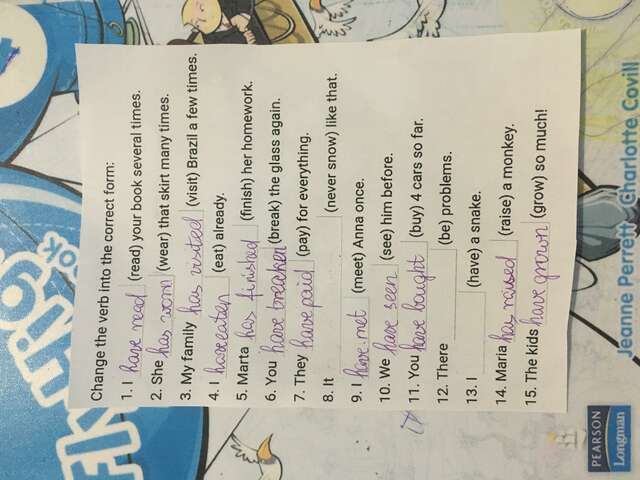 Change the verb into the correct form:
1. I have read (read) your book several times.
2. She has worn (wear) that skirt many times.
3. My family has visited (visit) Brazil a few times.
4. I have eaten (eat) already.
5. Marta has finished (finish) her homework.
6. You have breaken (break) the glass again.
7. They have paid (pay) for everything.
8. It (never snow) like that.
9. I have met (meet) Anna once.
10. We have seen (see) him before.
11. You have bought (buy) 4 cars so far.
12. There (be) problems.
13. I (have) a snake.
14. Maria has raised (raise) a monkey.
15. The kids have grown (grow) so much!
Jeanne Perrett Charlotte Covill
PEARSON
Longman